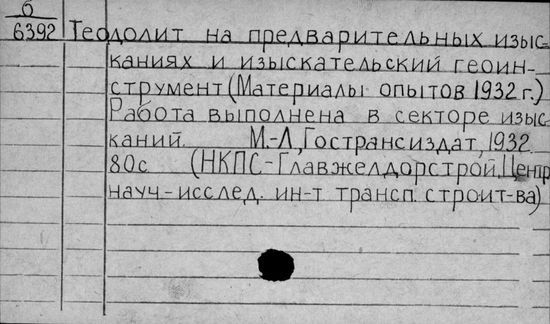 б
6392 Теодолит на предварительных изыс-
каниях и изыскательский геоин-
струмент (Материалы опытов 1932 г.)
Работа выполнена в секторе изыс-
каний. М.-Л., Гострансиздат, 1932.
80с (НКПС-Главжелдорстрой, Центр
науч-исслед. ин-т трансп. строит-ва)